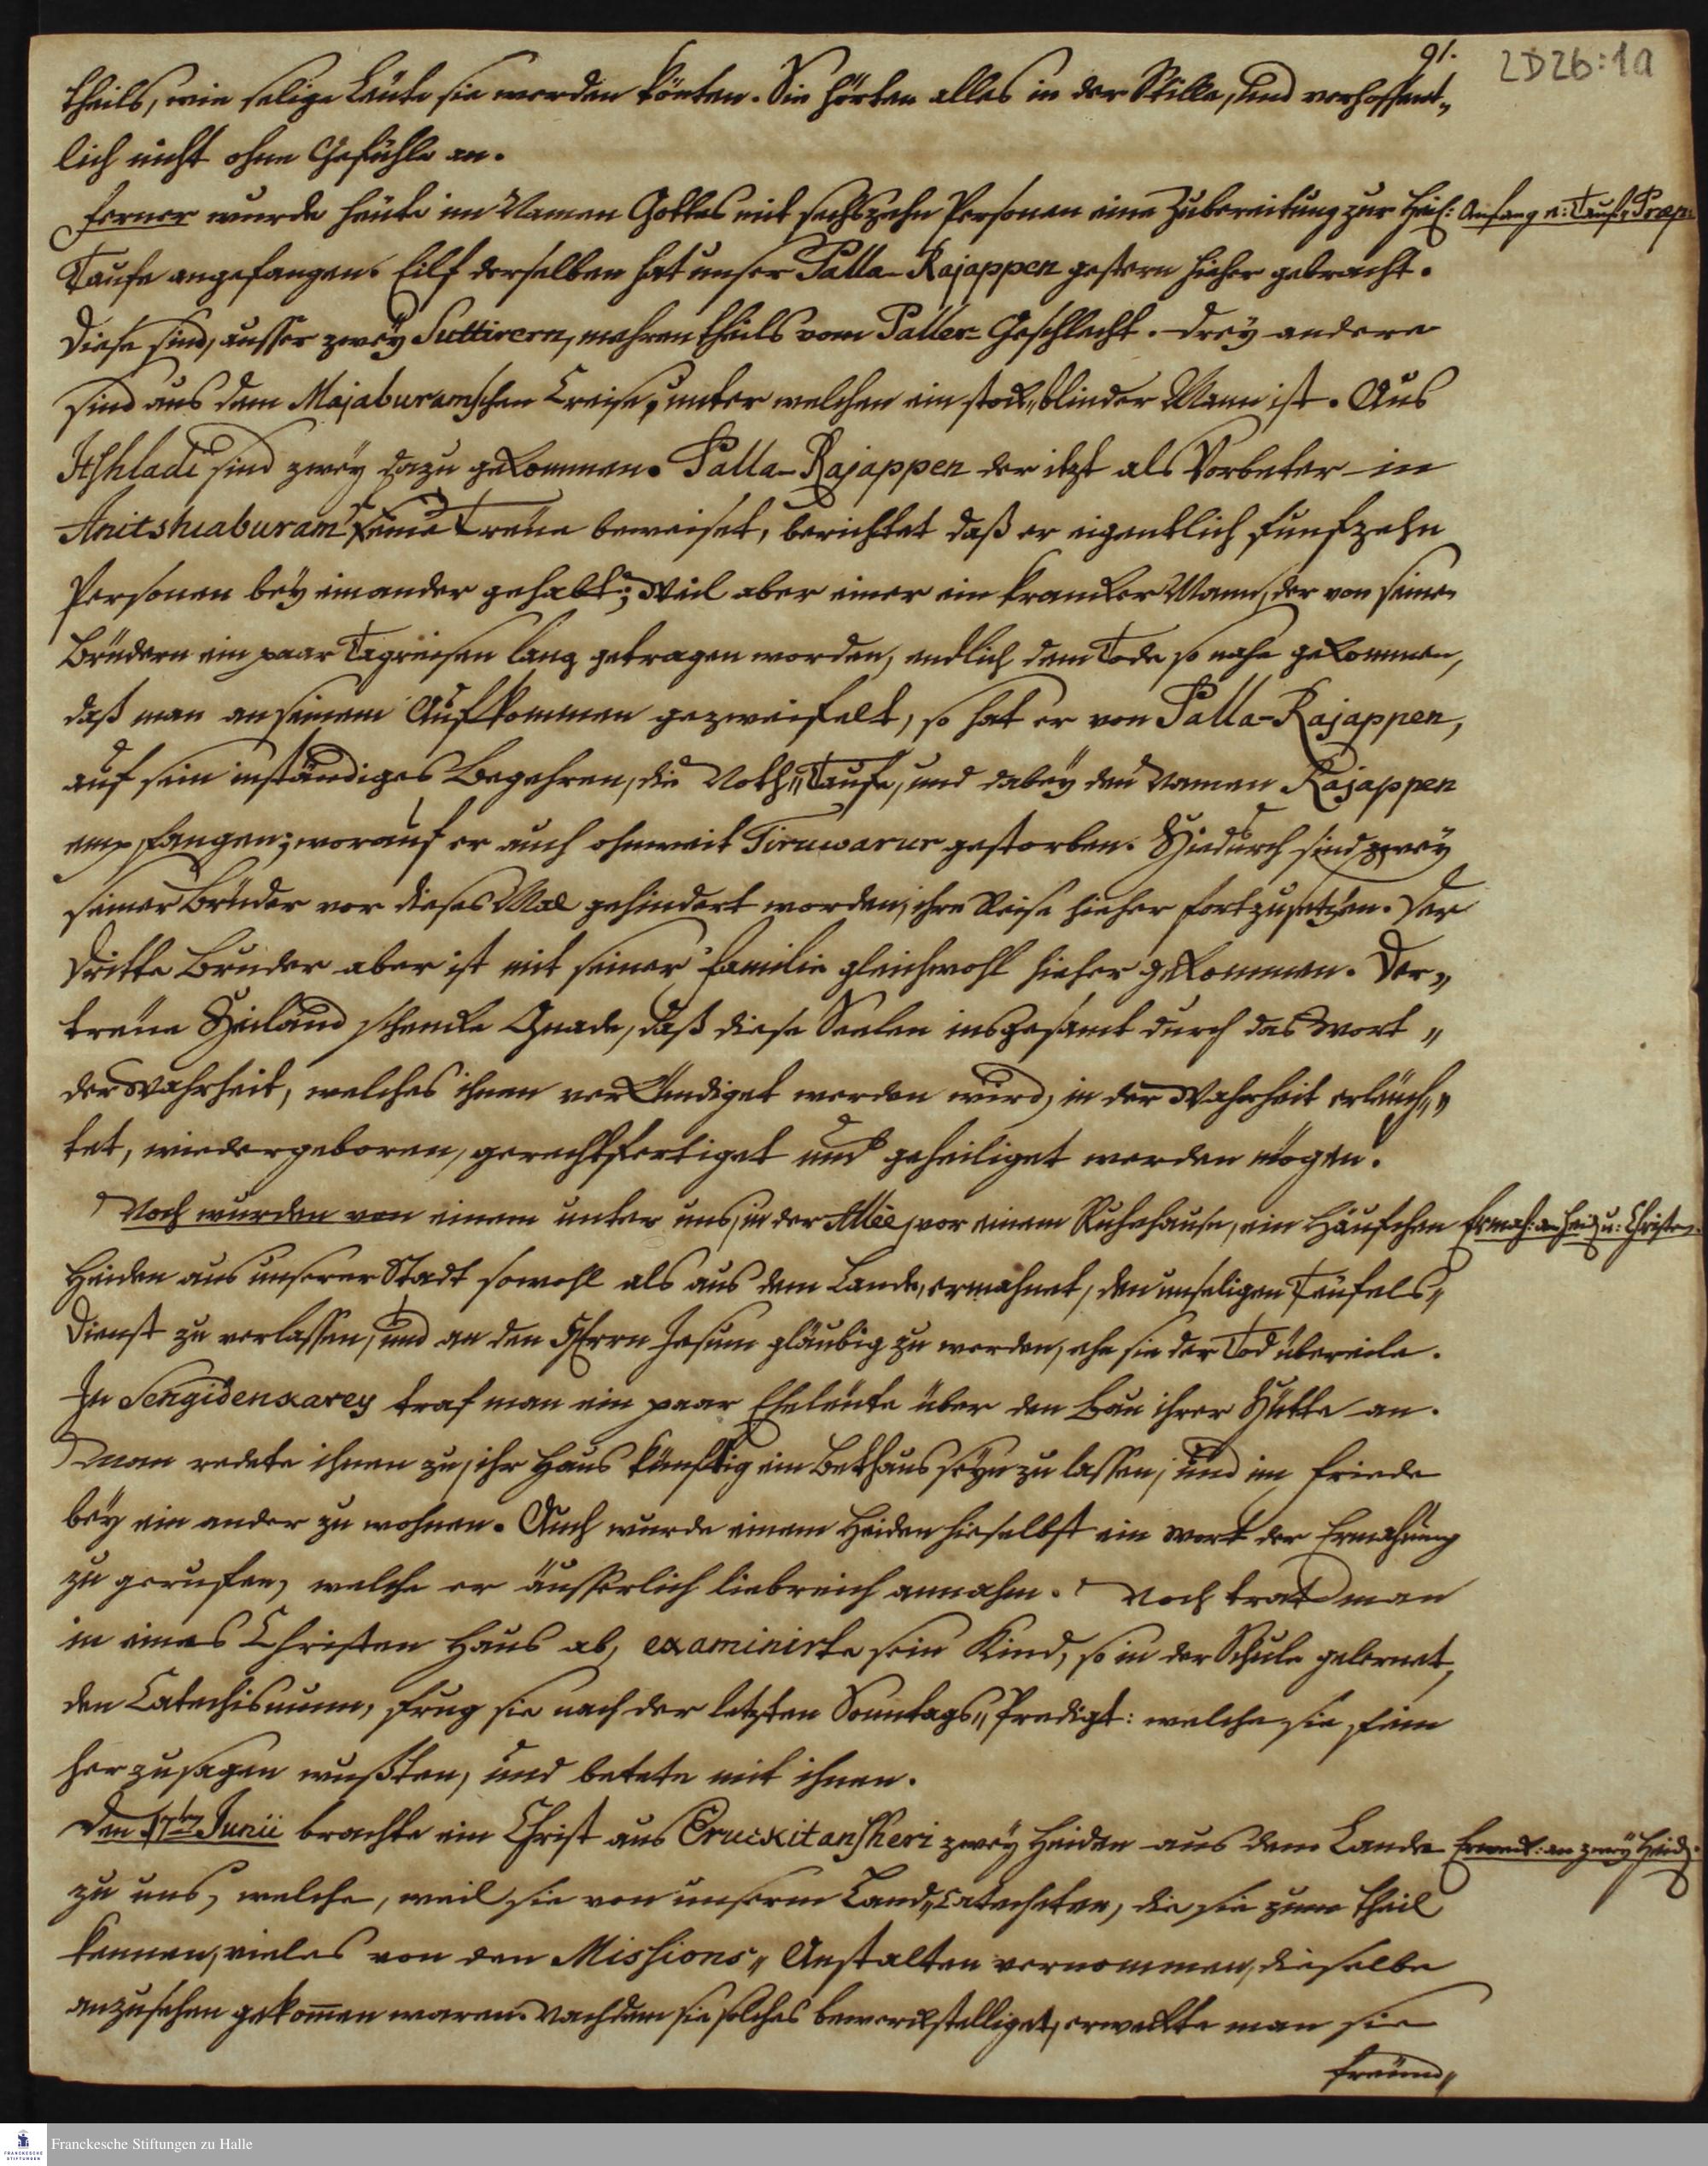 91.
2D26:19
theils, wie selige Leüte sie werden könten. Sie hörten alles in der Stille, und verhoffent„
lich nicht ohne Gefühle an.
Ferner wurde heüte im Namen Gottes mit sechszehn Personen eine Zubereitung zur Heil:
Anfang e: Tauf„Praep:
Taufe angefangen. Eilf derselben hat unser Palla-Rajappen gestern hieher gebracht.
Diese sind, ausser zwey Suttirern, mehrentheils vom Paller-Geschlecht. Drey andere
sind aus dem Majaburamschen Creise, unter welchen ein stock„blinder Mann ist. Aus
Itshladi sind zwey dazu gekommen. Palla-Rajappen der itzt als Vorbeter in
Anitshiaburam seine Treüe beweiset, berichtet daß er eigentlich funfzehn
Personen bey einander gehabt; Weil aber einer ein krancker Mann, der von seinen
Brüdern ein paar Tagreisen lang getragen worden, endlich dem Tode so nahe gekommen,
daß man an seinem Aufkommen gezweifelt, so hat er von Palla-Rajappen,
auf sein inständiges Begehren, die Noth„Taufe, und dabey den Namen Rajappen
empfangen; worauf er auch ohnweit Tiruwarur gestorben. Hiedurch sind zwey
seiner Brüder vor dieses Mal gehindert worden, ihre Reise hieher fortzusetzen. Der
dritte Bruder aber ist mit seiner Familie gleichwohl hieher gekommen. Der„
treüe Heiland schencke Gnade, daß diese Seelen insgesamt durch das Wort „
der Wahrheit, welches ihnen verkündiget werden wird, in der Wahrheit erleüch„
tet, wiedergeboren, gerechtfertiget und geheiliget werden mögen.
Noch wurden von einem unter uns, in der Allée, vor einem Ruhehause, ein Häufchen
Ermah: an Heid: u: Christen.
Heiden aus unserer Stadt sowohl als aus dem Lande, ermahnet, den unseligen Teüfels„
Dienst zu verlassen, und an den HErrn Jesum gläubig zu werden, ehe sie der Tod übereile.
In Sengidenkarey traf man ein paar Eheleüte über den Bau ihrer Hütte an.
Man redete ihnen zu, ihr Haus künftig ein Bethaus seyn zu lassen, und im Friede
bey ein ander zu wohnen. Auch wurde einem Heiden hieselbst ein Wort der Ermahnung
zu gerufen, welche er äusserlich liebreich annahm. Noch trat man
in eines Christen Haus ab, examinirte sein Kind, so in der Schule gelernet,
den Catechismum, frug sie nach der letzten Sonntags„Predigt: welche sie fein
her zu sagen wußten, und betete mit ihnen.
Den 17ten Junii brachte ein Christ aus Eruckitansheri zwey Heiden aus dem Lande
Erweck: an zwey Heid:
zu uns, welche, weil sie von unserm Land„Catecheten, die sie zum Theil
kennen, vieles von den Missions„ Anstalten vernommen, dieselbe
anzusehen gekom̄en waren. Nachdem sie solches bewerckstelliget, erweckte man sie
freünd„
Franckesche Stiftungen zu Halle
FRANCKESCHE
STIFTUNGEN